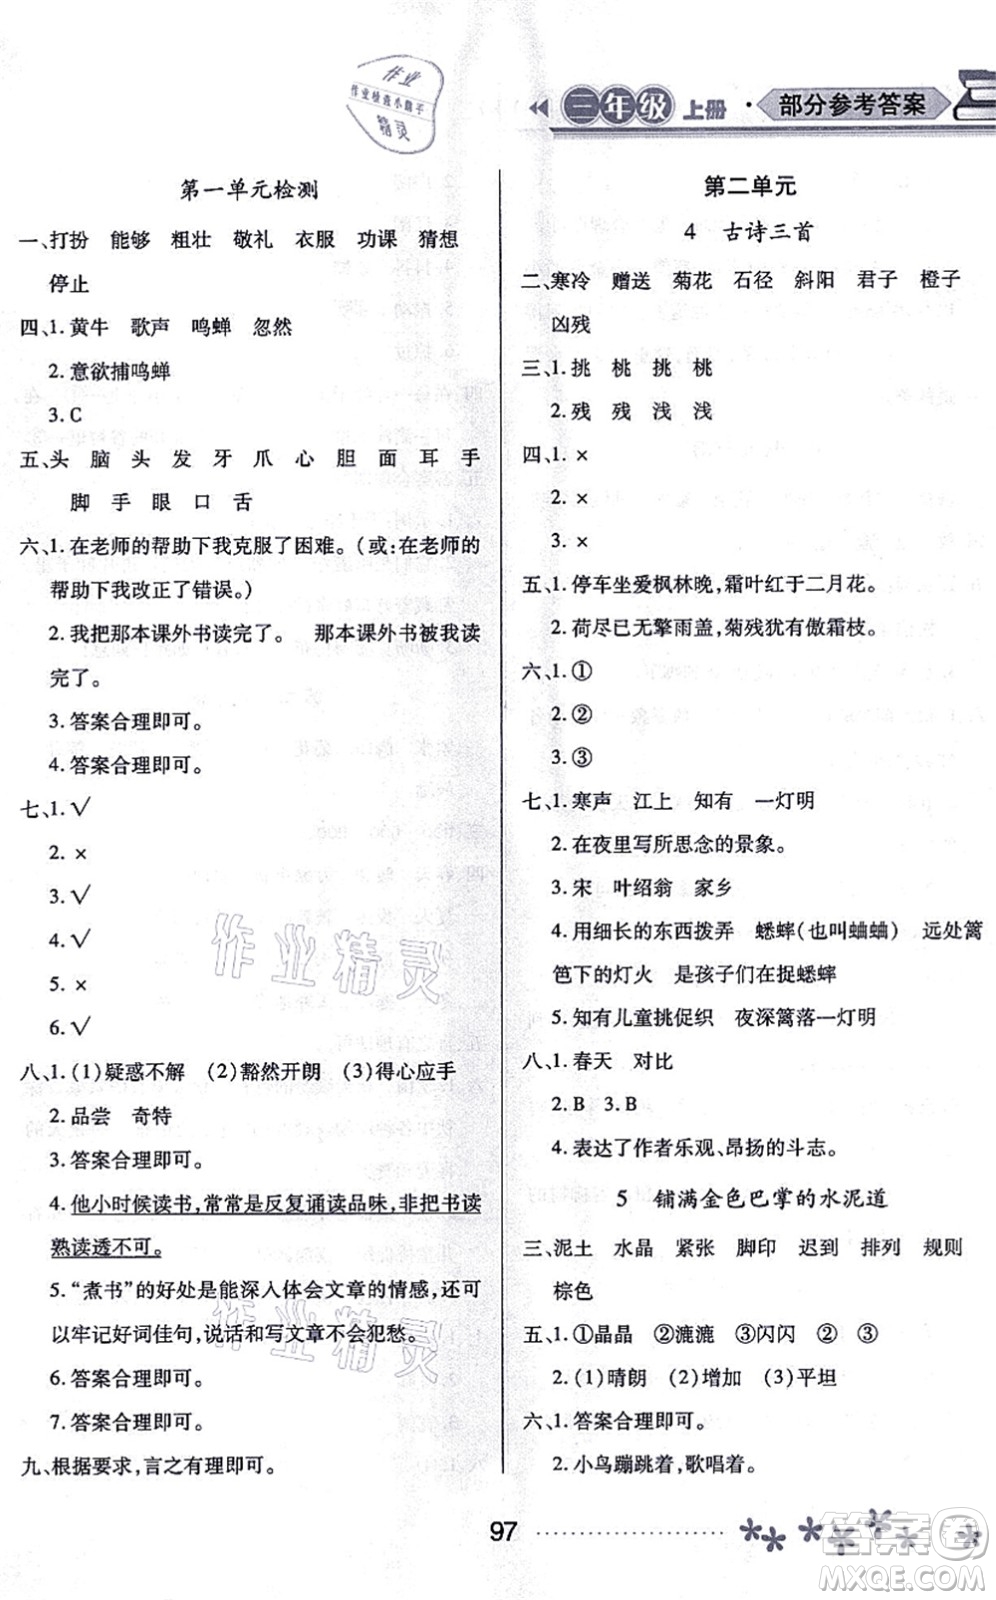 作业
作业检查小助手
精灵
三年级 上册 · 部分参考答案
第一单元检测
一、打扮 能够 粗壮 敬礼 衣服 功课 猜想
停止
四、1. 黄牛 歌声 鸣蝉 忽然
2. 意欲捕鸣蝉
3. C
五、头 脑 头 发 牙 爪 心 胆 面 耳 手
脚 手 眼 口 舌
六、1. 在老师的帮助下我克服了困难。(或:在老师的
帮助下我改正了错误。)
2. 我把那本课外书读完了。 那本课外书被我读
完了。
3. 答案合理即可。
4. 答案合理即可。
七、1. √
2. ×
3. √
4. √
5. ×
6. √
八、1. (1)疑惑不解 (2)豁然开朗 (3)得心应手
2. 品尝 奇特
3. 答案合理即可。
4. 他小时候读书,常常是反复诵读品味,非把书读
熟读透不可。
5. “煮书”的好处是能深入体会文章的情感,还可
以牢记好词佳句,说话和写文章不会犯愁。
6. 答案合理即可。
7. 答案合理即可。
九、根据要求,言之有理即可。
第二单元
4 古诗三首
二、寒冷 赠送 菊花 石径 斜阳 君子 橙子
凶残
三、1. 挑 桃 挑 桃
2. 残 残 浅 浅
四、1. ×
2. ×
3. ×
五、1. 停车坐爱枫林晚,霜叶红于二月花。
2. 荷尽已无擎雨盖,菊残犹有傲霜枝。
六、1. ①
2. ②
3. ③
七、1. 寒声 江上 知有 一灯明
2. 在夜里写所思念的景象。
3. 宋 叶绍翁 家乡
4. 用细长的东西拨弄 蟋蟀(也叫蛐蛐) 远处篱
笆下的灯火 是孩子们在捉蟋蟀
5. 知有儿童挑促织 夜深篱落一灯明
八、1. 春天 对比
2. B 3. B
4. 表达了作者乐观、昂扬的斗志。
5 铺满金色巴掌的水泥道
三、泥土 水晶 紧张 脚印 迟到 排列 规则
棕色
五、1. ①晶晶 ②漉漉 ③闪闪 ② ③
2. (1)晴朗 (2)增加 (3)平坦
六、1. 答案合理即可。
2. 小鸟蹦跳着,歌唱着。
作业精灵
作业精灵
97
答案圈
MXQE.COM